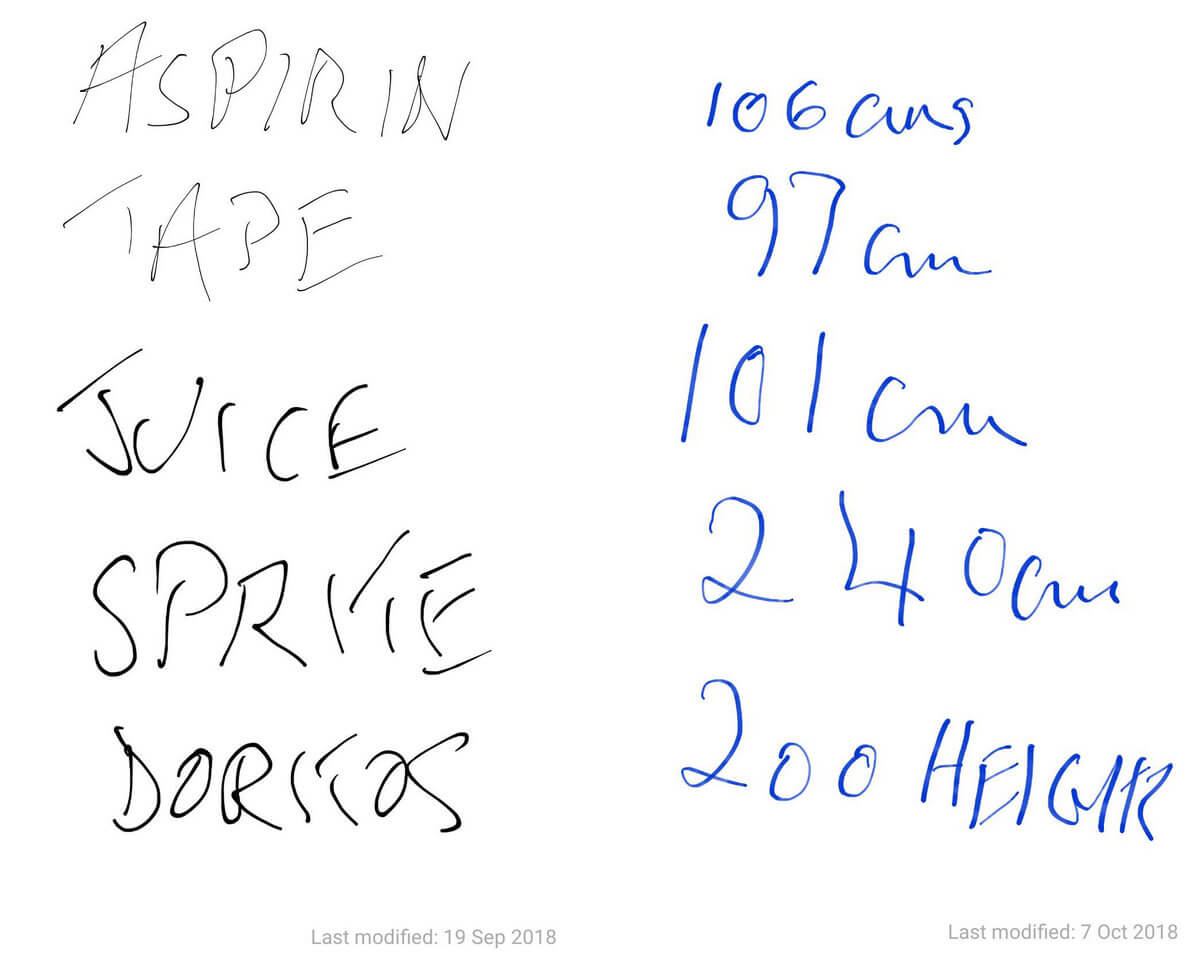 ASPIRIN
TAPE
JUICE
SPRITE
DORITOS
Last modified: 19 Sep 2018
106 cms
97 cm
101 cm
240cm
200 HEIGHT
Last modified: 7 Oct 2018